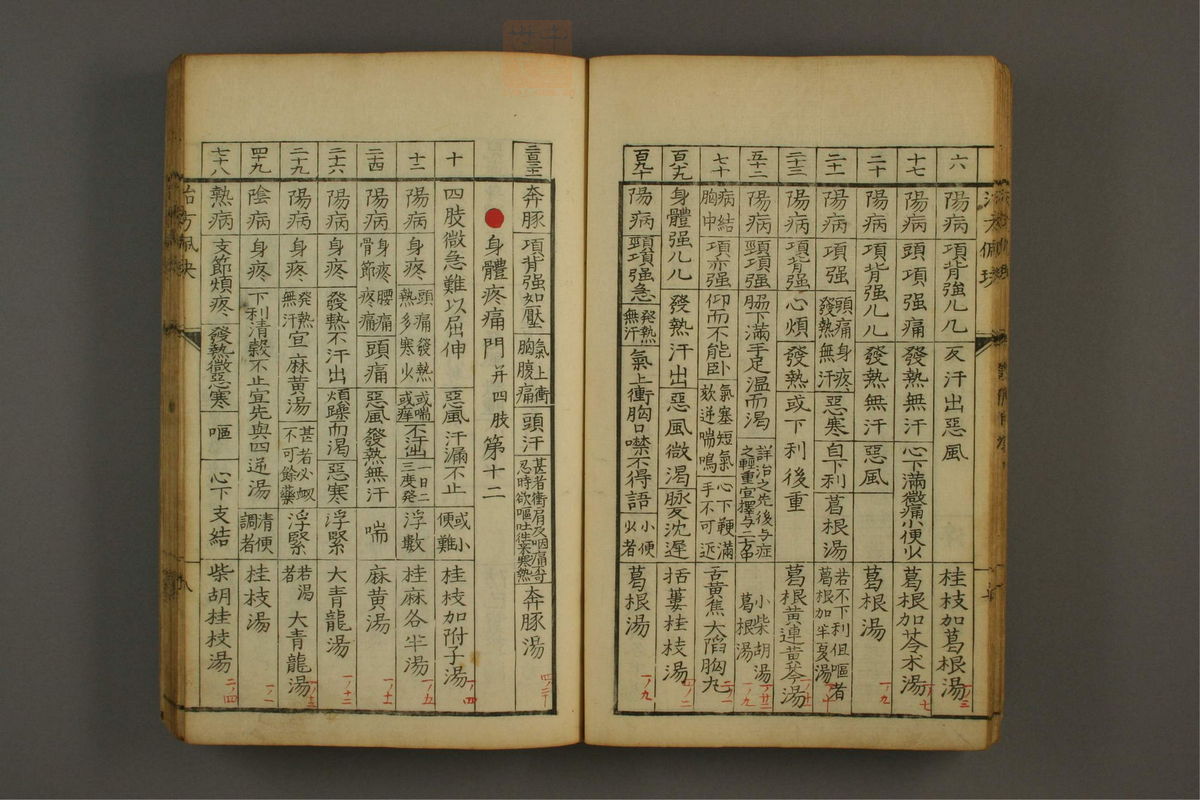 六 陽病 項背強几几 反汗出惡風 桂枝加葛根湯
十七 陽病 頭項强痛 發熱無汗 心下滿微痛小便少 葛根加苓朮湯
二十 陽病 項背强几几 發熱無汗 惡風 葛根湯
二十一 陽病 項强 頭痛身疼發熱無汗 惡寒 自下利 葛根湯 若不下利但嘔者葛根加半夏湯
二十三 陽病 項背强 心煩 發熱 或下利後重 葛根黃連黃芩湯
五十二 陽病 頸項强 脇下滿手足溫而渴 詳治之先後与症之輕重宜擇与二方 小柴胡湯 葛根湯
七十 病結胸中 項亦强 仰而不能臥 氣塞短氣欬逆喘鳴 心下鞕滿手不可近 舌黃焦大陷胸丸
百九 身體强几几 發熱汗出 惡風微渴 脉反沈遲 括蔞桂枝湯
百九十 陽病 頸項强急 發熱無汗 氣上衝胸口噤不得語 小便少者 葛根湯
奔豚 項背强如壓 氣上衝胸腹痛 頭汗 奔豚湯
身體疼痛門 并四肢 第十二
十 四肢微急難以屈伸 惡風汗漏不止 或小便難 桂枝加附子湯
十二 陽病 身疼 頭痛發熱熱多寒少 或喘或痒 不嘔 一日二三度發 浮數 桂麻各半湯
二十四 陽病 身疼腰痛骨節疼痛 頭痛 惡風發熱無汗 喘 麻黃湯
二十六 陽病 身疼 發熱不汗出 煩躁而渴 惡寒 浮緊 大青龍湯
二十九 陽病 身疼 發熱無汗 宜麻黃湯 甚者必衂不可餘藥 浮緊 若渴者 大青龍湯
四十九 陰病 身疼 下利清穀不止宜先與四逆湯 清便調者 桂枝湯
七十八 熱病 支節煩疼 發熱微惡寒 嘔 心下支結 柴胡桂枝湯